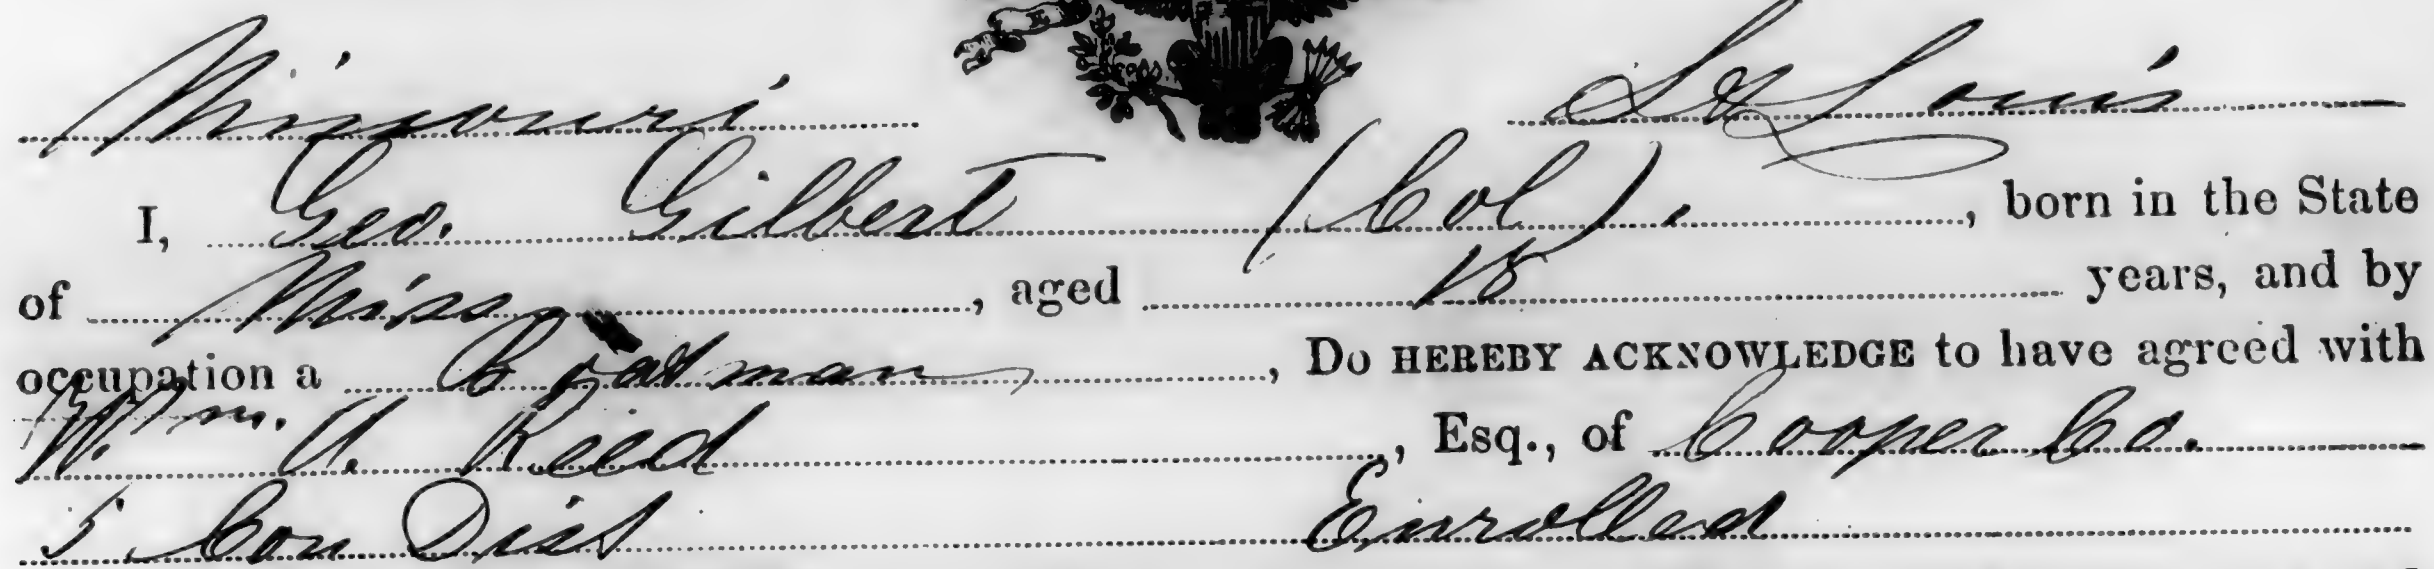 Missouri St Louis
I, Geo. Gilbert (Col)., born in the State
of Miss, aged 18 years, and by
occupation a Boatman, Do HEREBY ACKNOWLEDGE to have agreed with
Wm. A. Reed, Esq., of Cooper Co.
5 Con Dist Enrolled